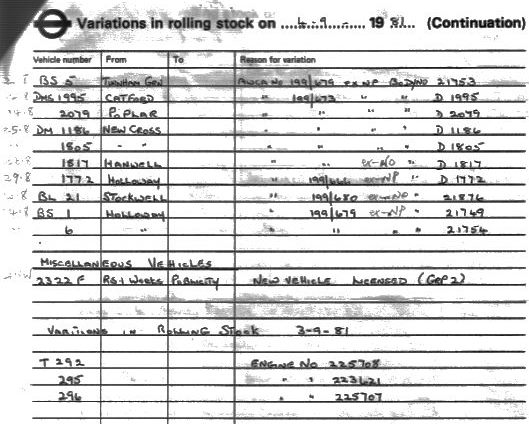 Variations in rolling stock on ....4.9...... 19 81... (Continuation)
Vehicle number From To Reason for variation
BS 5 TURNHAM GRN 199/679 EX NP BODY NO 21753
DMS 1995 CATFORD " 199/673 " " D 1995
2079 POPLAR " " " " D 2079
25.8 DM 1186 NEW CROSS " " " " D 1186
1805 " " " " D 1805
1817 HANWELL " " ex-NO " D 1817
29.8 1772 HOLLOWAY " 199/666 ex-NP " D 1772
BL 21 STOCKWELL " 199/680 " 21876
BS 1 HOLLOWAY " 199/679 ex-NP " 21749
6 " " " " 21754
MISCELLANEOUS VEHICLES
2322 F PUBLICITY NEW VEHICLE LICENSED (GRP 2)
VARITIONS IN ROLLING STOCK 3-9-81
T 292 ENGINE NO 225708
295 " " 223621
296 " " 225707